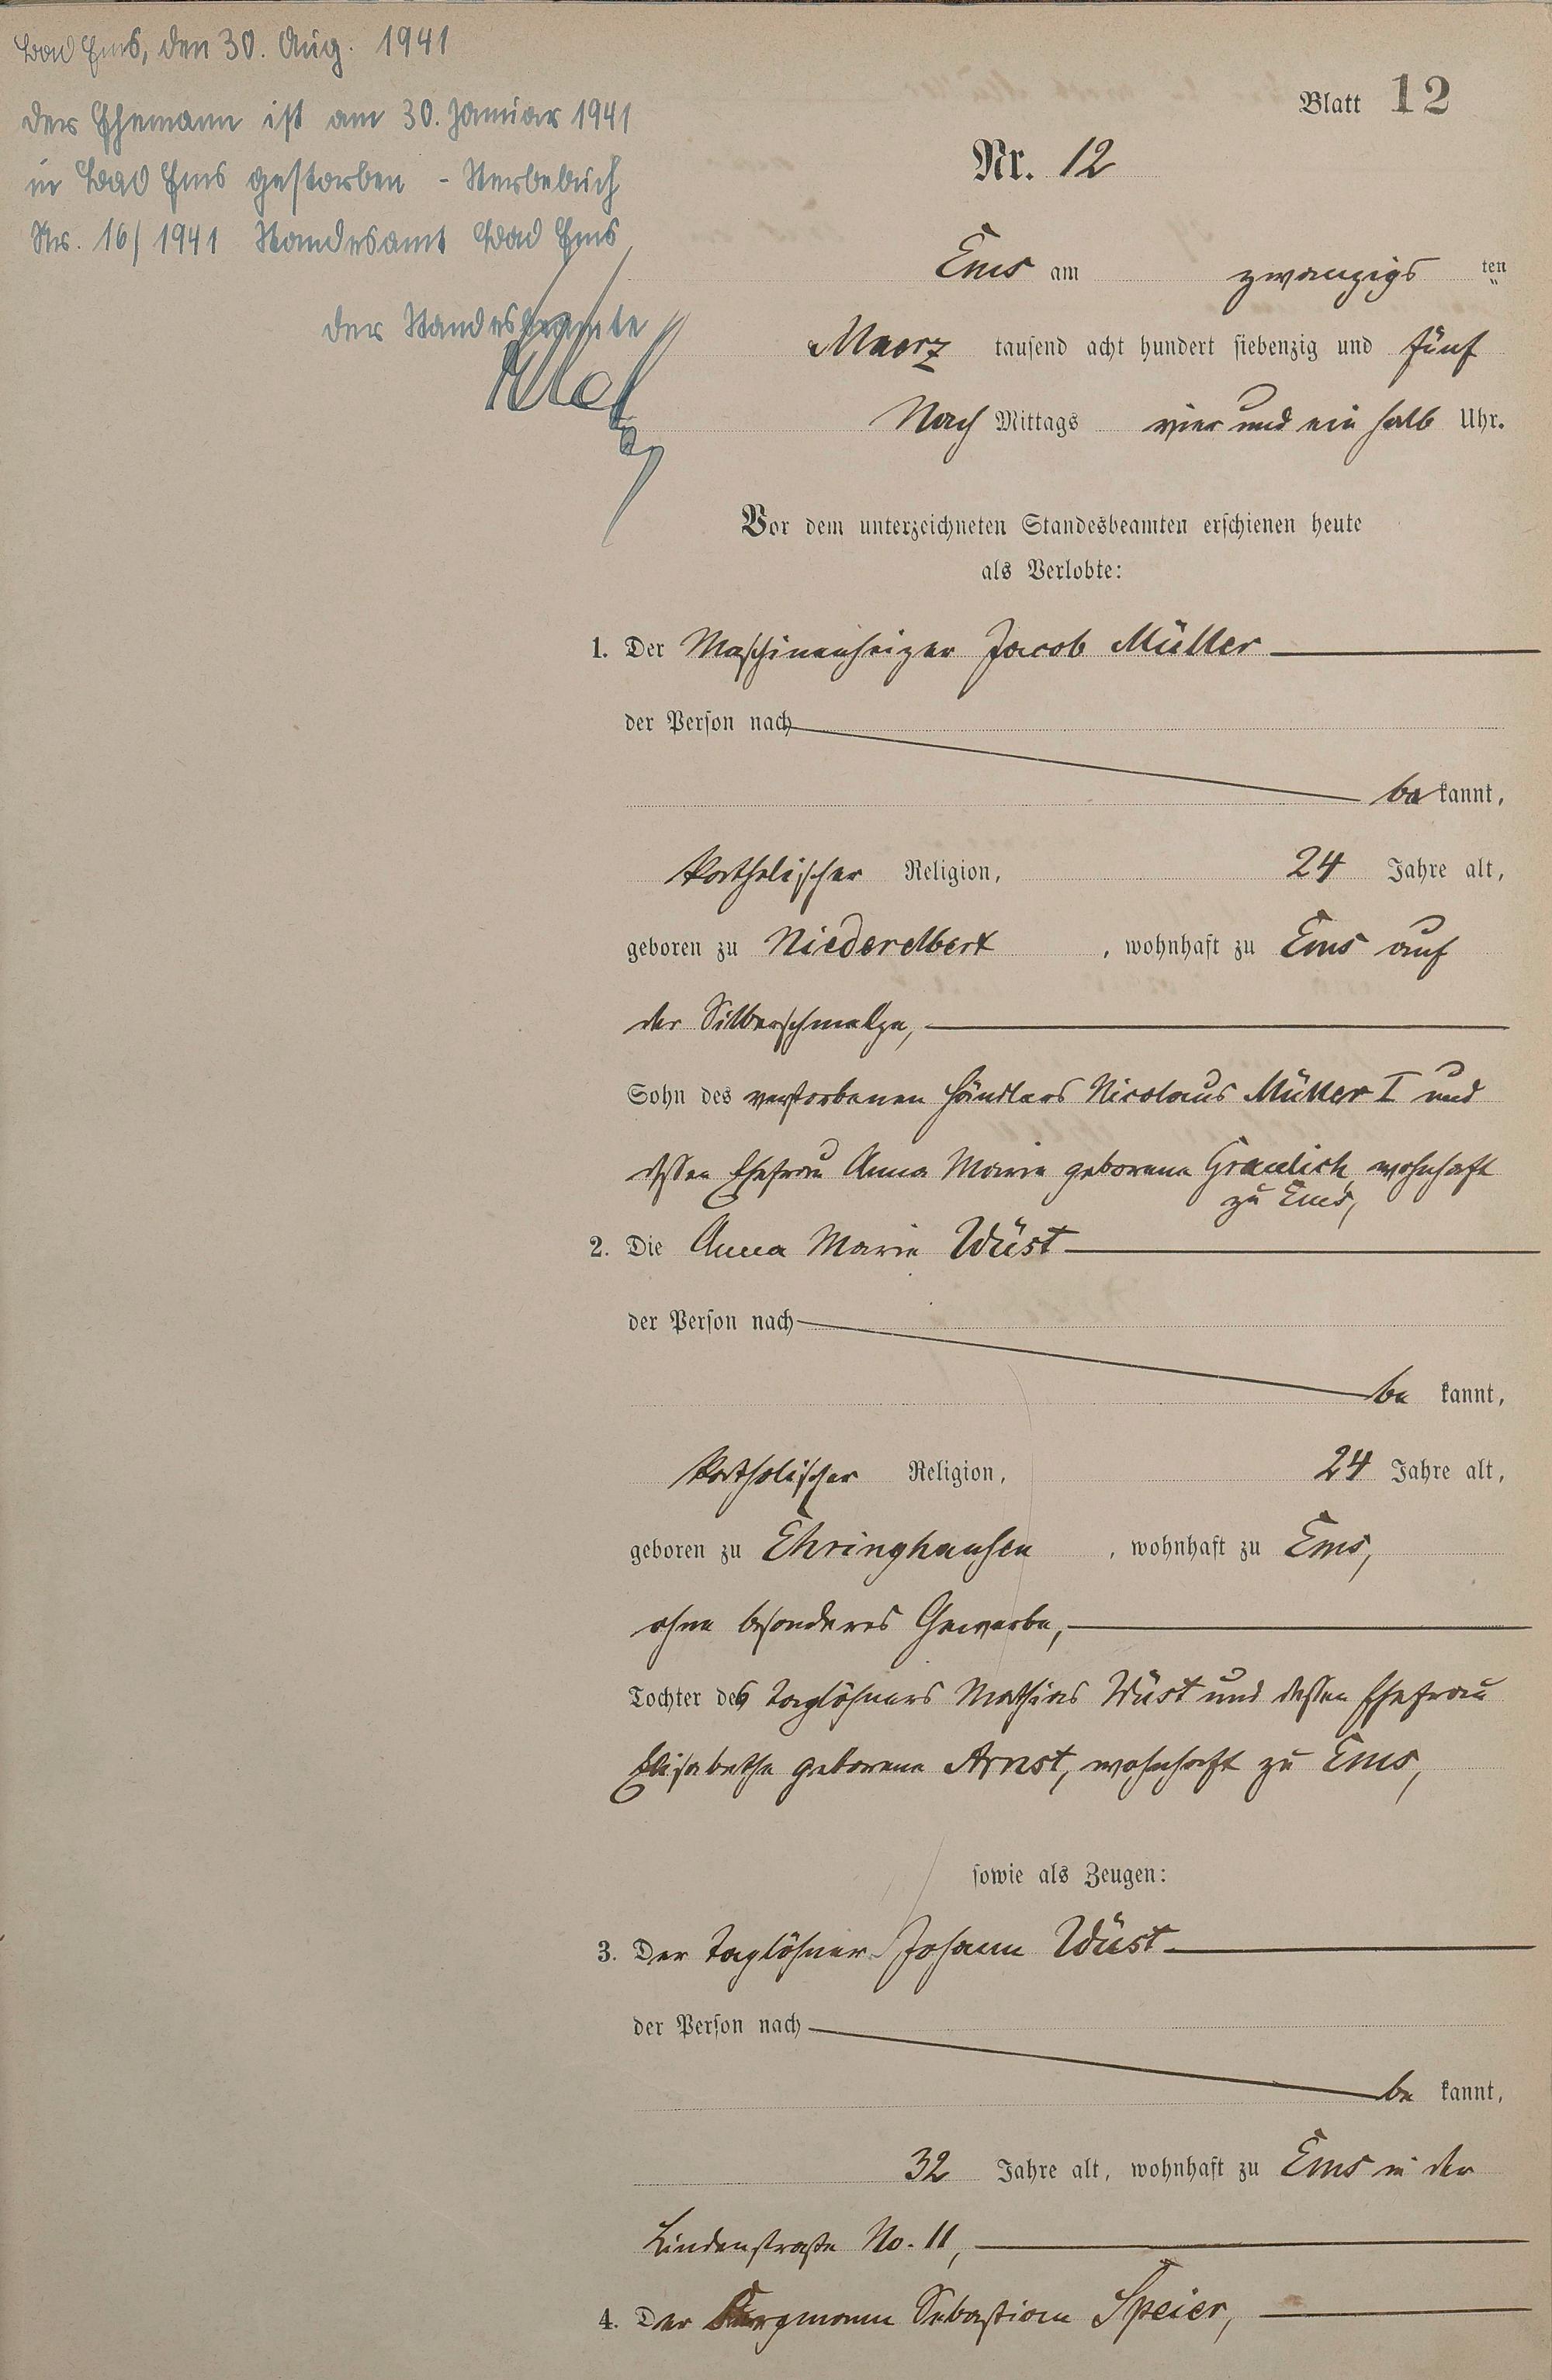 Bad Ems, den 30. Aug. 1941
Der Ehemann ist am 30. Januar 1941
in Bad Ems gestorben - Sterbebuch
Nr. 16/1941 Standesamt Bad Ems
Der Standesbeamte
Blatt 12
Nr. 12
Ems am zwanzigs ten
Maerz tausend acht hundert siebenzig und fünf
Nach Mittags vier und ein halb Uhr.
Vor dem unterzeichneten Standesbeamten erschienen heute
als Verlobte:
1. Der Maschinenheizer Jacob Müller
der Person nach
be kannt,
Katholischer Religion, 24 Jahre alt,
geboren zu Niederelbert, wohnhaft zu Ems auf
der Silberschmelze,
Sohn des verstorbenen Händlers Nicolaus Müller I und
dessen Ehefrau Anna Marie geborene Graulich, wohnhaft
zu Ems,
2. Die Anna Marie Wüst
der Person nach
be kannt,
Katholischer Religion, 24 Jahre alt,
geboren zu Ehringhausen, wohnhaft zu Ems,
ohne besonderes Gewerbe,
Tochter des Taglöhners Mathias Wüst und dessen Ehefrau
Elisabethe geborene Arnst, wohnhaft zu Ems,
sowie als Zeugen:
3. Der Taglöhner Johann Wüst
der Person nach
be kannt,
32 Jahre alt, wohnhaft zu Ems in der
Lindenstraße No. 11,
4. Der Bergmann Sebastian Speier,